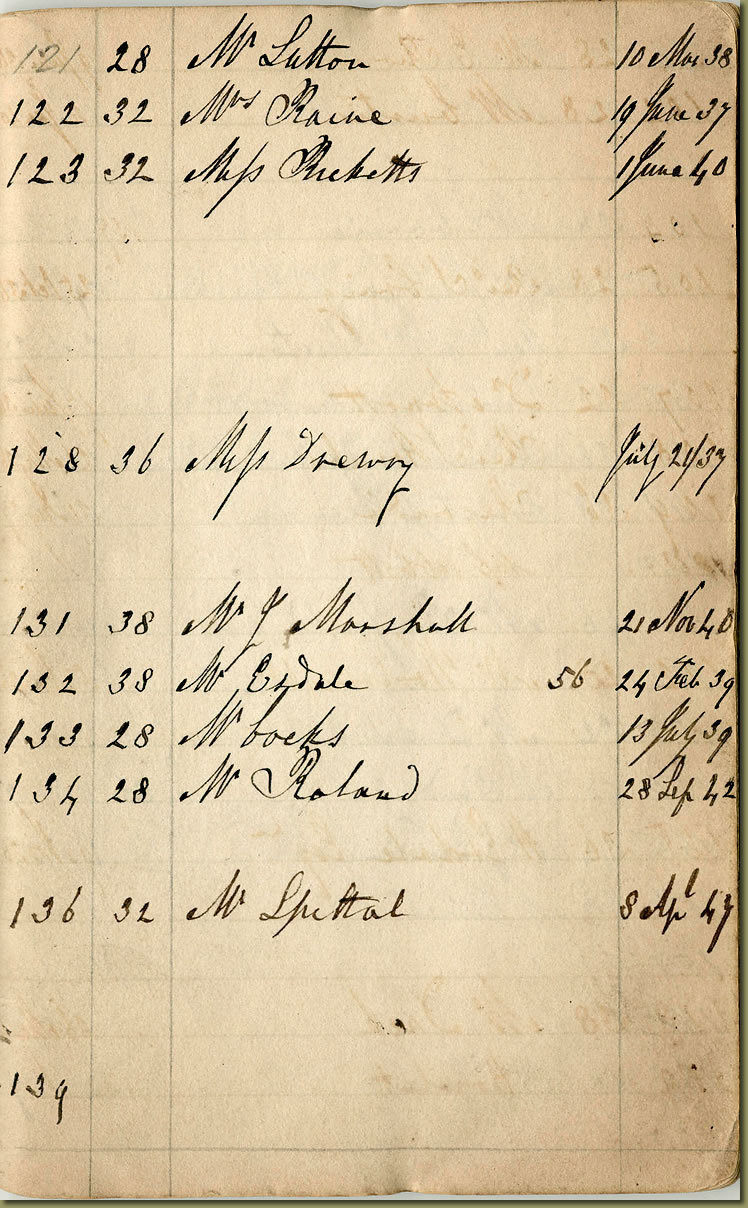 121 28 Mr Sutton 10 Mar 38
122 32 Mrs Raine 19 June 37
123 32 Miss Ricketts 1 June 40
128 36 Miss Drewry July 21/37
131 38 Mr J Marshall 21 Nov 40
132 38 Mr Esdale 56 24 Feb 39
133 28 Mr Cocks 13 July 39
134 28 Mr Roland 28 Sep 42
136 32 Mr Spittal 8 Apl 47
139